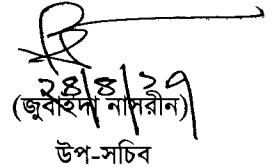 ২৪/৪/১৭
(জুবাইদা নাসরীন)
উপ-সচিব